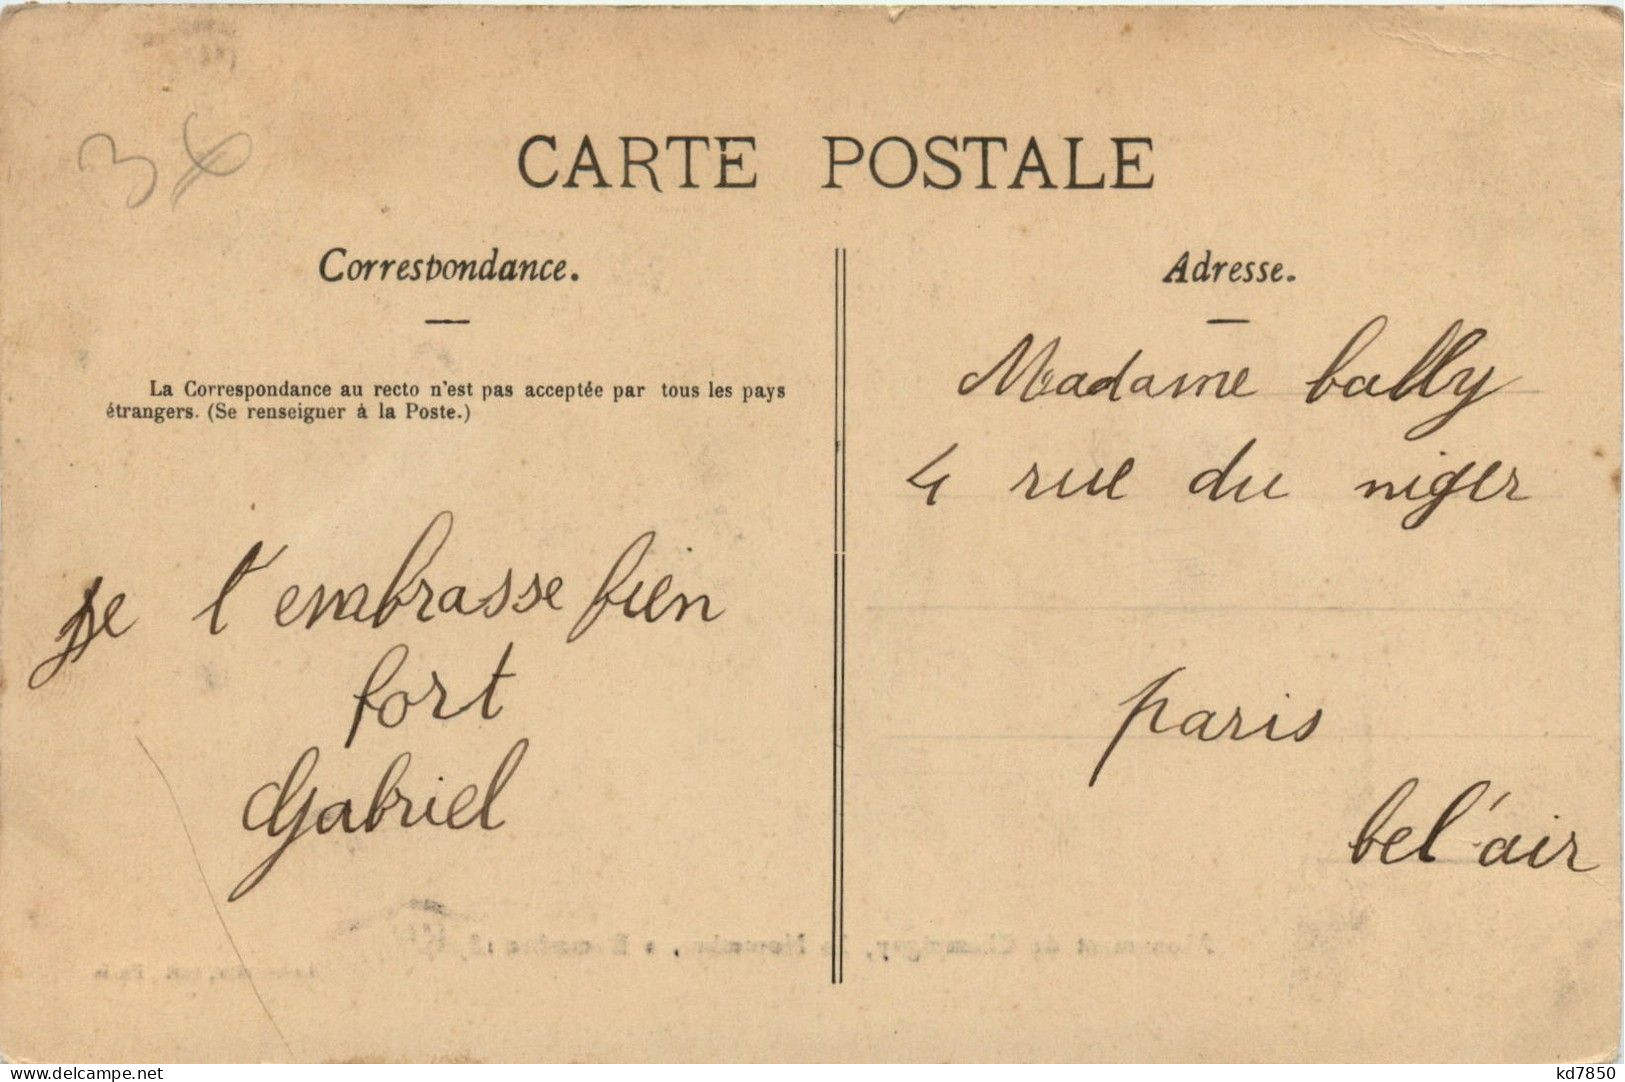 3x
CARTE POSTALE
Correspondance.
La Correspondance au recto n'est pas acceptée par tous les pays
étrangers. (Se renseigner à la Poste.)
je t'embrasse bien
fort
Gabriel
Adresse.
Madame bally
4 rue du niger
paris
bel'air
akpool.de
kd7850